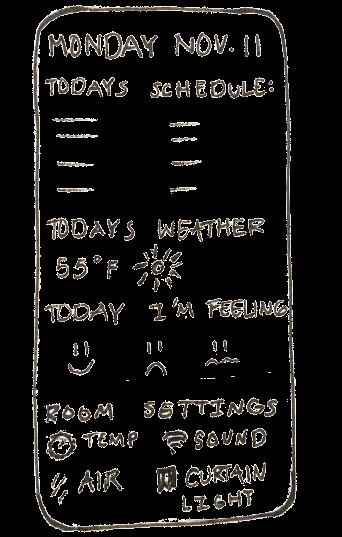 MONDAY NOV. 11
TODAYS SCHEDULE:
TODAYS WEATHER
55°F
TODAY I'M FEELING
ROOM SETTINGS
TEMP SOUND
AIR CURTAIN
LIGHT